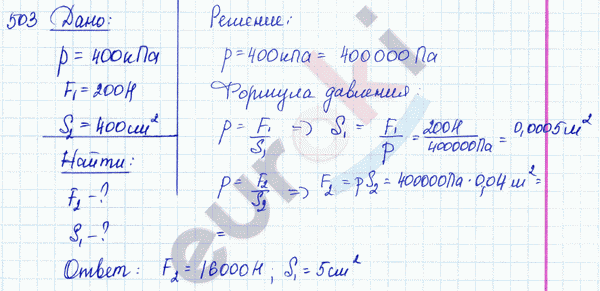 503 Дано:
p = 400кПа
F₁ = 200Н
S₂ = 400см²
Найти:
F₂ - ?
S₁ - ?
Решение:
p = 400кПа = 400000Па
Формула давления:
p = F₁/S₁ => S₁ = F₁/p = 200Н/400000Па = 0,0005м²
p = F₂/S₂ => F₂ = pS₂ = 400000Па · 0,04м² =
=
Ответ: F₂ = 16000Н; S₁ = 5см²
euroki